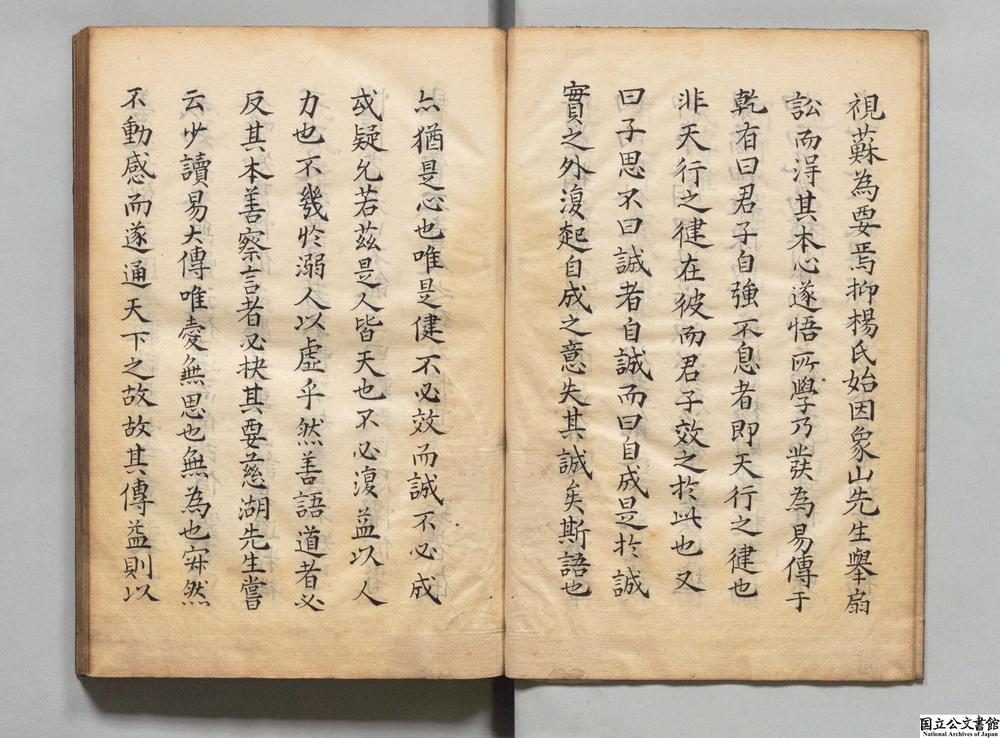 視蘇為要焉抑楊氏始因象山先生舉扇
訟而淂其本心遂悟所學乃發為易傳于
乾有曰君子自強不息者即天行之徤也
非天行之徤在彼而君子效之於此也又
曰子思不曰誠者自誠而曰自成是扵誠
實之外復起自成之意失其誠矣斯語也
亦猶是心也唯是健不必效而誠不必成
或疑允若茲是人皆天也不必復益以人
力也不幾扵溺人以虛乎然善語道者必
反其本善察言者必抉其要慈湖先生嘗
云少讀易大傳唯愛無思也無為也寂然
不動感而遂通天下之故故其傳益則以
国立公文書館
National Archives of Japan